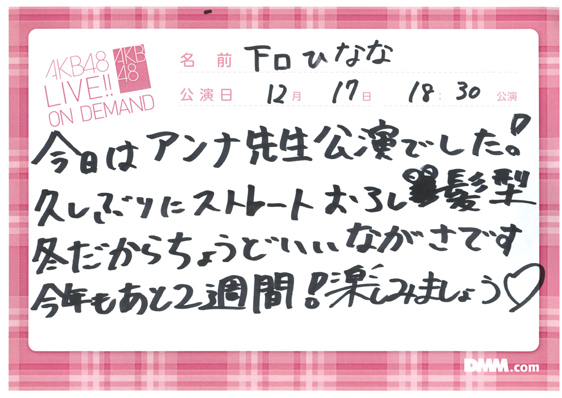 AKB48
LIVE!!
ON DEMAND
AKB
48
名前 下口ひなな
公演日 12月 17日 18:30 公演
今日はアンナ先生公演でした!
久しぶりにストレートおろし髪型
冬だからちょうどいいながさです
今年もあと2週間!楽しみましょう♡
DMM.com